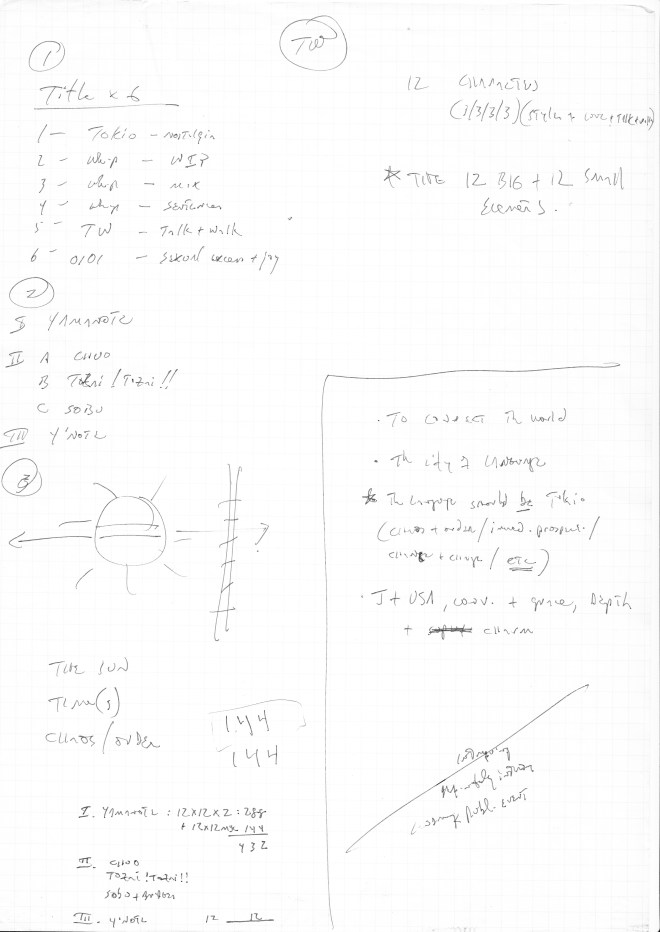 TW
1
Title x 6
1 - Tokio - nostalgia
2 - whip - WIP
3 - whip - mix
4 - whip - sentences
5 - TW - Talk + walk
6 - 0101 - + joy
12 CHARACTERS
(3/3/3/3) (style +
* THE 12 BIG + 12 Small
Elements.
2
I YAMANOTE
II A CHUO
B Tozai! Tozai!!
C SOBU
III Y'NOTE
3
?
THE SUN
Time(s)
CHAOS / ORDER
144
144
I. YAMANOTE : 12x12x2 : 288
+ 12x12 144
432
II. CHUO
TOZAI! TOZAI!!
SOBU +
III. Y'NOTE 12 12
· To connect the world
· The city & language
* The language should be Tokio
(chaos + order /
change / etc)
· J + USA, conv. + grace, Depth
+ charm